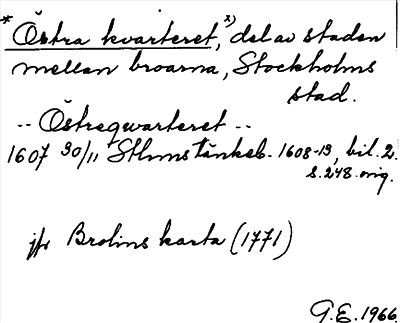 * Östra kvarteret, x) del av staden
mellan broarna, Stockholms
stad.
-- Östreqwarteret --
1607 30/11 Sthms tänkeb. 1608-13, bil. 2.
s. 248. orig.
jfr Brolins karta (1771)
G.E. 1966.